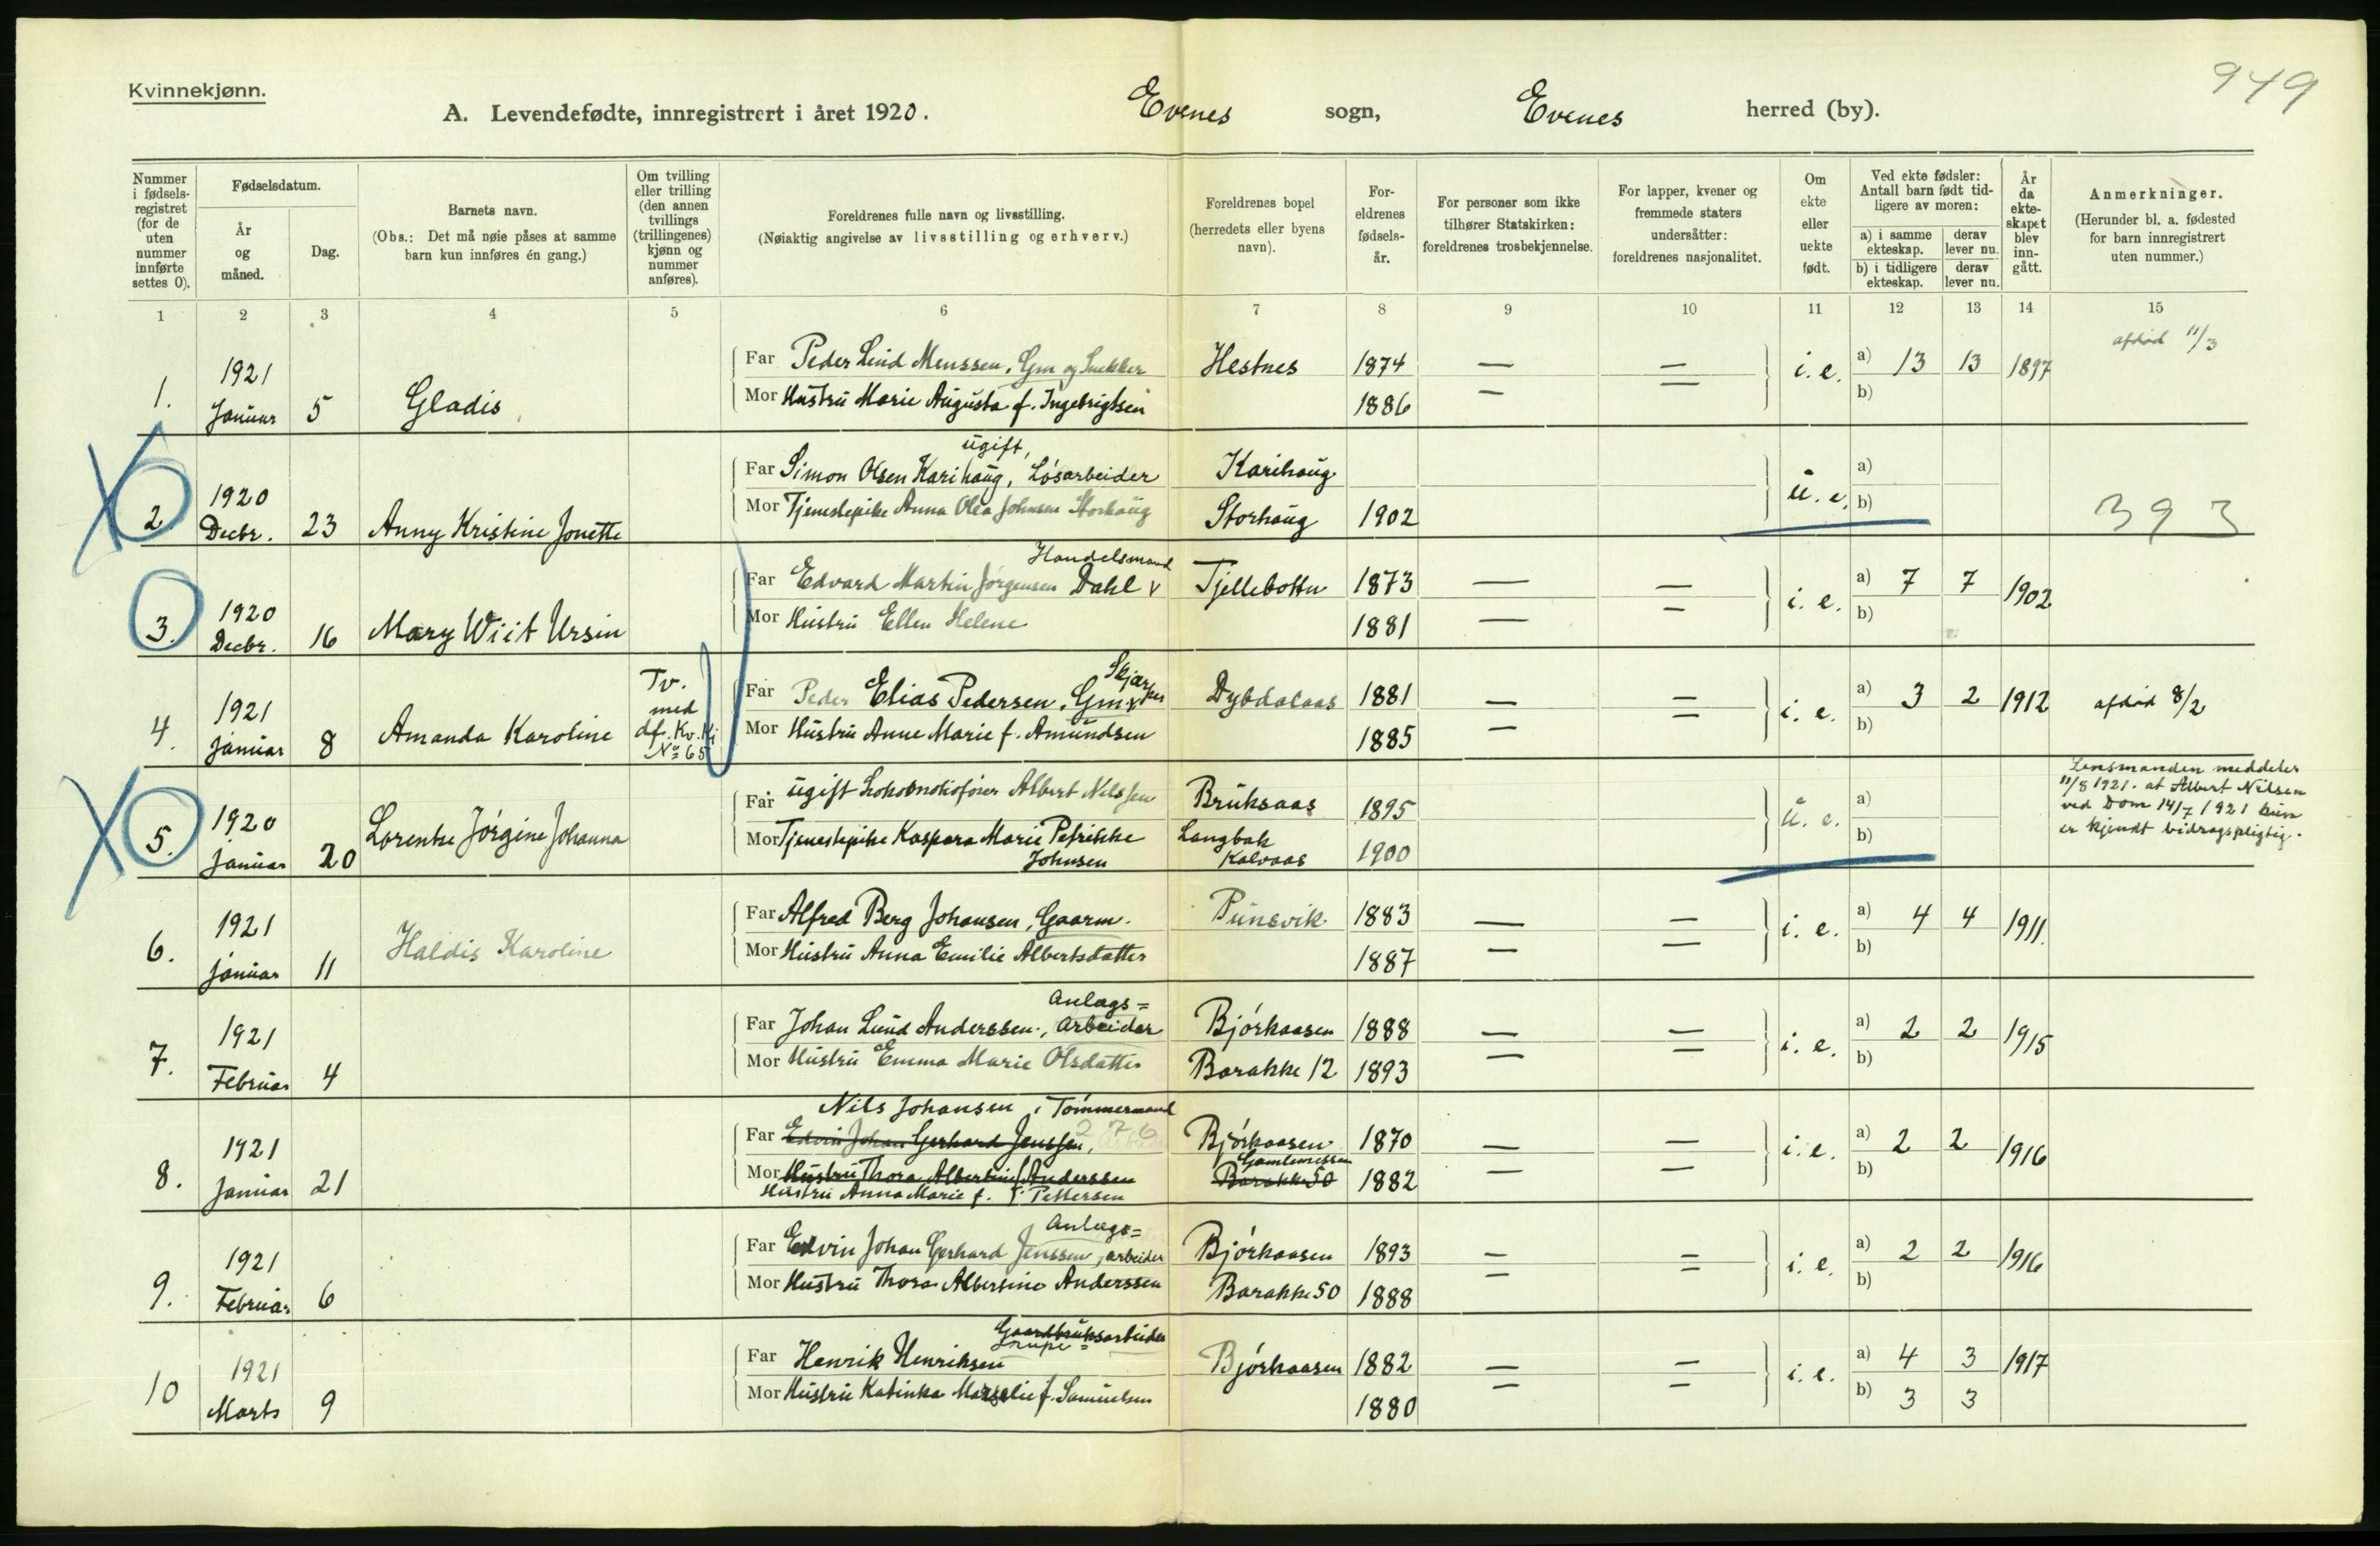 949
Kvinnekjønn.
A. Levendefødte, innregistrert i året 1920. Evenes sogn, Evenes herred (by).
Nummer i fødsels-registret (for de uten nummer innførte settes 0).
Fødselsdatum.
År og måned.
Dag.
Barnets navn.
(Obs.: Det må nøie påses at samme barn kun innføres én gang.)
Om tvilling eller trilling (den annen tvillings (trillingenes) kjønn og nummer anføres).
Foreldrenes fulle navn og livsstilling.
(Nøiaktig angivelse av livsstilling og erhverv.)
Foreldrenes bopel (herredets eller byens navn).
For-eldrenes fødsels-år.
For personer som ikke tilhører Statskirken: foreldrenes trosbekjennelse.
For lapper, kvener og fremmede staters undersåtter: foreldrenes nasjonalitet.
Om ekte eller uekte født.
Ved ekte fødsler: Antall barn født tid-ligere av moren:
a) i samme ekteskap. derav lever nu.
b) i tidligere ekteskap. derav lever nu.
År da ekte-skapet blev inn-gått.
Anmerkninger.
(Herunder bl. a. fødested for barn innregistrert uten nummer.)
1 2 3 4 5 6 7 8 9 10 11 12 13 14 15
afdød 11/3
1921
Far Peder Lind Menssen, Gm og Snekker Hestnes 1874 — — i. e. a) 13 13 1897
1. Januar 5 Gladis Mor Hustru Marie Augusta f. Ingebrigtsen 1886 — — b)
ugift,
1920 Far Simon Olsen Karihaug, Løsarbeider Karihaug u. e. a)
2 Decbr. 23 Anny Kristine Jonette Mor Tjenestepike Anna Olea Johnsen Storhaug Storhaug 1902 b) 393
Handelsmand
1920 Far Edvard Martin Jørgensen Dahl v Tjellebotn 1873 — — i. e. a) 7 7 1902
3. Decbr. 16 Mary Wiit Ursin Mor Hustru Ellen Helene 1881 — — b)
Tv. med df. Kv. Kj No 65
Skjærper
1921 Far Peder Elias Pedersen, Gm v Dybdalaas 1881 — — i. e. a) 3 2 1912 afdød 8/2
4. Januar 8 Amanda Karoline Mor Hustru Anne Marie f. Amundsen 1885 — — b)
Lensmanden meddeler
11/8 1921. at Albert Nilsen
ved Dom 14/7 1921 kun
er kjendt bidragspligtig.
1920 Far ugift Lokomotivfører Albert Nilssen Bruksaas 1895 u. e. a)
5. Januar 20 Lorentze Jørgine Johanna Mor Tjenestepike Kaspara Marie Petrikke Johnsen Langbak Kalvaas 1900 b)
1921 Far Alfred Berg Johansen, Gaarm. Punsvik 1883 — — i. e. a) 4 4 1911.
6. Januar 11 Haldis Karoline Mor Hustru Anna Emilie Albertsdatter 1887 — — b)
Anlægs=
1921 Far Johan Lund Anderssen, arbeider Bjørkaasen 1888 — — i. e. a) 2 2 1915
7. Februar 4 Mor Hustru Emma Marie Olsdatter Barakke 12 1893 — — b)
Nils Johansen, Tømmermand
1921 Far Edvin Johan Gerhard Jenssen, 276 Bjørkaasen 1870 — — i. e. a) 2 2 1916
Gamlemessen
8. Januar 21 Mor Hustru Thora Albertine f Anderssen Barakke 50 1882 — — b)
Hustru Anna Marie f. Pettersen
Anlægs=
1921 Far Edvin Johan Gerhard Jenssen, arbeider Bjørkaasen 1893 — — i. e. a) 2 2 1916
9. Februar 6 Mor Hustru Thora Albertine Anderssen Barakke 50 1888 — — b)
Gaardbruksarbeider
Grube=
1921 Far Henrik Henriksen Bjørkaasen 1882 — — i. e. a) 4 3 1917
10 Marts 9 Mor Hustru Katinka Marselie f. Samuelsen 1880 — — b) 3 3